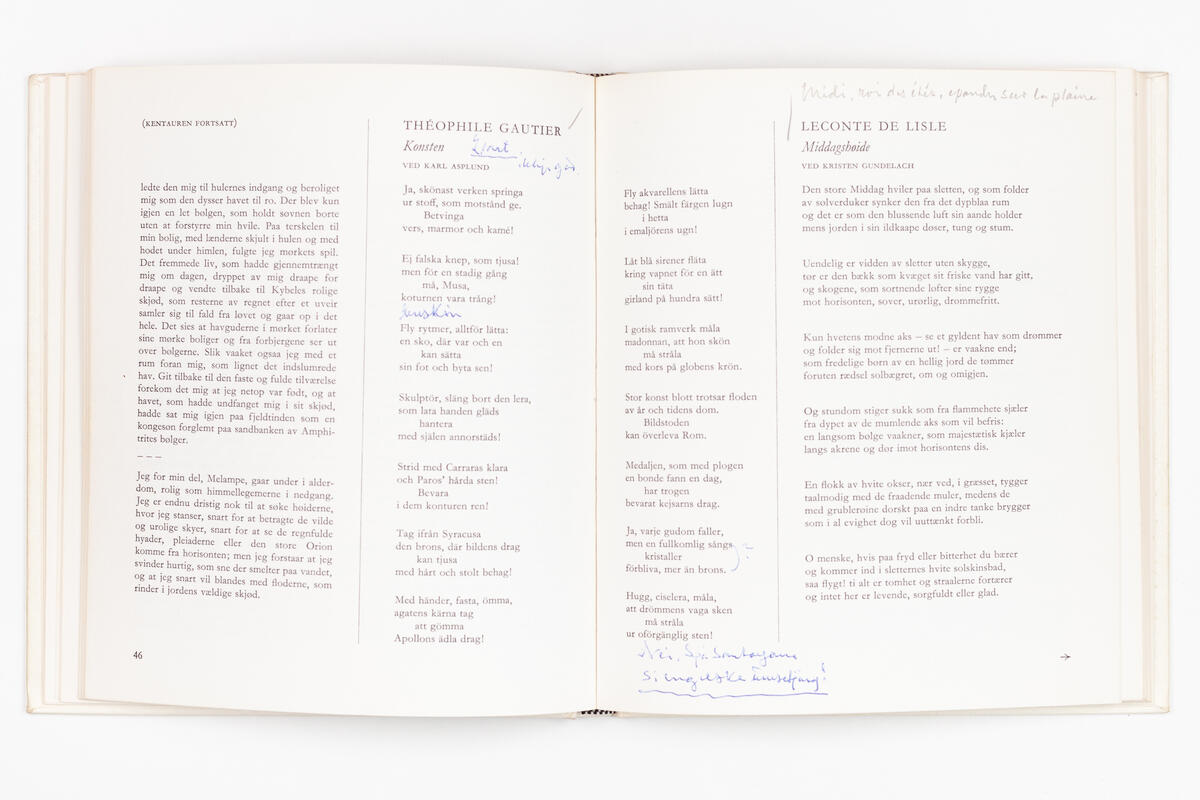 (KENTAUREN FORTSATT)
ledte den mig til hulernes indgang og beroliget
mig som den dysser havet til ro. Der blev kun
igjen en let bølgen, som holdt søvnen borte
uten at forstyrre min hvile. Paa terskelen til
min bolig, med lænderne skjult i hulen og med
hodet under himlen, fulgte jeg mørkets spil.
Det fremmede liv, som hadde gjennemtrængt
mig om dagen, dryppet av mig draape for
draape og vendte tilbake til Kybeles rolige
skjød, som resterne av regnet efter et uveir
samler sig til fra løvet og gaar op i det
hele. Det sies at havguderne i mørket forlater
sine mørke boliger og fra forbjergene ser ut
over bølgerne. Slik vaaket ogsaa jeg med et
rum foran mig, som lignet det indslumrede
hav. Git tilbake til den faste og fulde tilværelse
forekom det mig at jeg netop var født, og at
havet, som hadde undfanget mig i sit skjød,
hadde sat mig igjen paa fjeldtinden som en
kongesøn forglemt paa sandbanken av Amphi-
trites bølger.
– – –
Jeg for min del, Melampe, gaar under i alder-
dom, rolig som himmellegemerne i nedgang.
Jeg er endnu dristig nok til at søke høiderne,
hvor jeg stanser, snart for at betragte de vilde
og urolige skyer, snart for at se de regnfulde
hyader, pleiaderne eller den store Orion
komme fra horisonten; men jeg forstaar at jeg
svinder hurtig, som sne der smelter paa vandet,
og at jeg snart vil blandes med floderne, som
rinder i jordens vældige skjød.
46
THÉOPHILE GAUTIER
Konsten
VED KARL ASPLUND
Ja, skönast verken springa
ur stoff, som motstånd ge.
Betvinga
vers, marmor och kamé!
Ej falska knep, som tjusa!
men för en stadig gång
må, Musa,
koturnen vara trång!
Fly rytmer, alltför lätta:
en sko, där var och en
kan sätta
sin fot och byta sen!
Skulptör, släng bort den lera,
som lata handen gläds
hantera
med själen annorstäds!
Strid med Carraras klara
och Paros' hårda sten!
Bevara
i dem konturen ren!
Tag ifrån Syracusa
den brons, där bildens drag
kan tjusa
med hårt och stolt behag!
Med händer, fasta, ömma,
agatens kärna tag
att gömma
Apollons ädla drag!
Fly akvarellens lätta
behag! Smält färgen lugn
i hetta
i emaljörens ugn!
Låt blå sirener fläta
kring vapnet för en ätt
sin täta
girland på hundra sätt!
I gotisk ramverk måla
madonnan, att hon skön
må stråla
med kors på globens krön.
Stor konst blott trotsar floden
av år och tidens dom.
Bildstoden
kan överleva Rom.
Medaljen, som med plogen
en bonde fann en dag,
har trogen
bevarat kejsarns drag.
Ja, varje gudom faller,
men en fullkomlig sångs
kristaller
förbliva, mer än brons.
?
Hugg, ciselera, måla,
att drömmens vaga sken
må stråla
ur oförgänglig sten!
Midi, roi des étés, épandu sur la plaine
LECONTE DE LISLE
Middagshøide
VED KRISTEN GUNDELACH
Den store Middag hviler paa sletten, og som folder
av sølverduker synker den fra det dypblaa rum
og det er som den blussende luft sin aande holder
mens jorden i sin ildkaape døser, tung og stum.
Uendelig er vidden av sletter uten skygge,
tør er den bækk som kvæget sit friske vand har git,
og skogene, som sortnende løfter sine rygge
mot horisonten, sover, urørlig, drømmefritt.
Kun hvetens modne aks – se et gyldent hav som drømmer
og folder sig mot fjernerne ut! – er vaakne end;
som fredelige børn av en hellig jord de tømmer
foruten rædsel solbægret, om og omigjen.
Og stundom stiger sukk som fra flammehete sjæler
fra dypet av de mumlende aks som vil befris:
en langsom bølge vaakner, som majestætisk kjæler
langs akrene og dør imot horisontens dis.
En flokk av hvite okser, nær ved, i græsset, tygger
taalmodig med de fraadende muler, medens de
med grublerøine dorskt paa en indre tanke brygger
som i al evighet dog vil uuttænkt forbli.
O menske, hvis paa fryd eller bitterhet du bærer
og kommer ind i sletternes hvite solskinsbad,
saa flygt! ti alt er tomhet og straalerne fortærer
og intet her er levende, sorgfuldt eller glad.
→